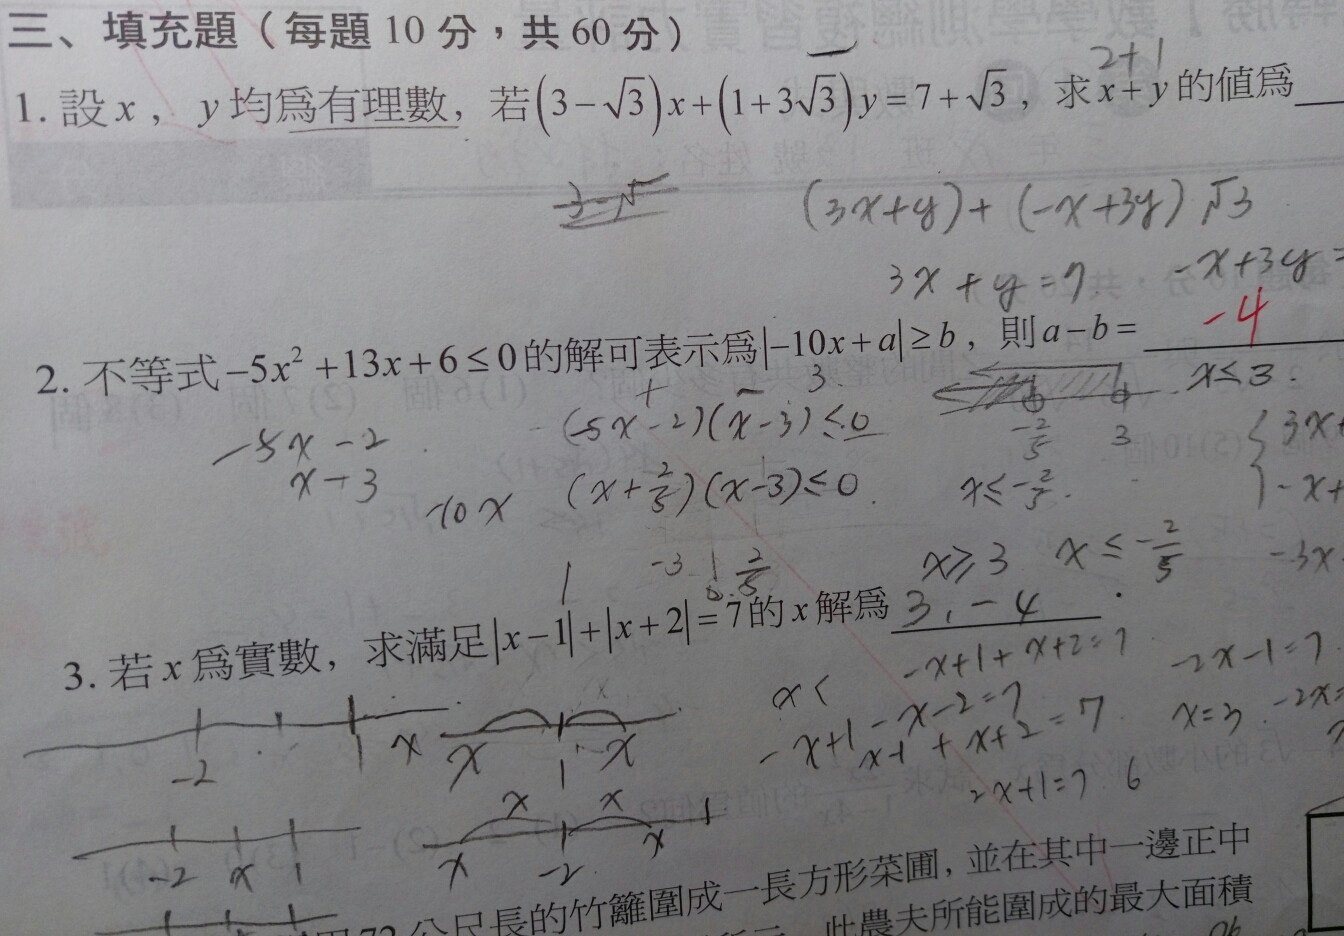 三、填充題（每題 10 分，共 60 分）
2+1
1. 設 x ， y 均為有理數，若(3−√3)x+(1+3√3)y=7+√3，求 x+y 的值為
3-√
(3x+y)+(-x+3y)√3
3x+y=7 -x+3y=
2. 不等式 −5x²+13x+6≤0 的解可表示為|−10x+a|≥b，則 a−b= -4
x≤3.
-5x-2 (-5x-2)(x-3)≤0 -2/5 3 {3x+
x-3 -10x (x+2/5)(x-3)≤0 x≤-2/5. -x+
-3 2/5 x≥3 x≤-2/5 -3x
3. 若 x 為實數，求滿足|x−1|+|x+2|=7 的 x 解為 3,-4
-x+1+x+2=7 -2x-1=7
x< -x+1-x-2=7 x=3 -2x=
-2 1 x x 1 x x-1+x+2=7
2x+1=7 6
x x
-2 x 1 x -2 x 1
72 公尺長的竹籬圍成一長方形菜圃，並在其中一邊正中
此農夫所能圍成的最大面積